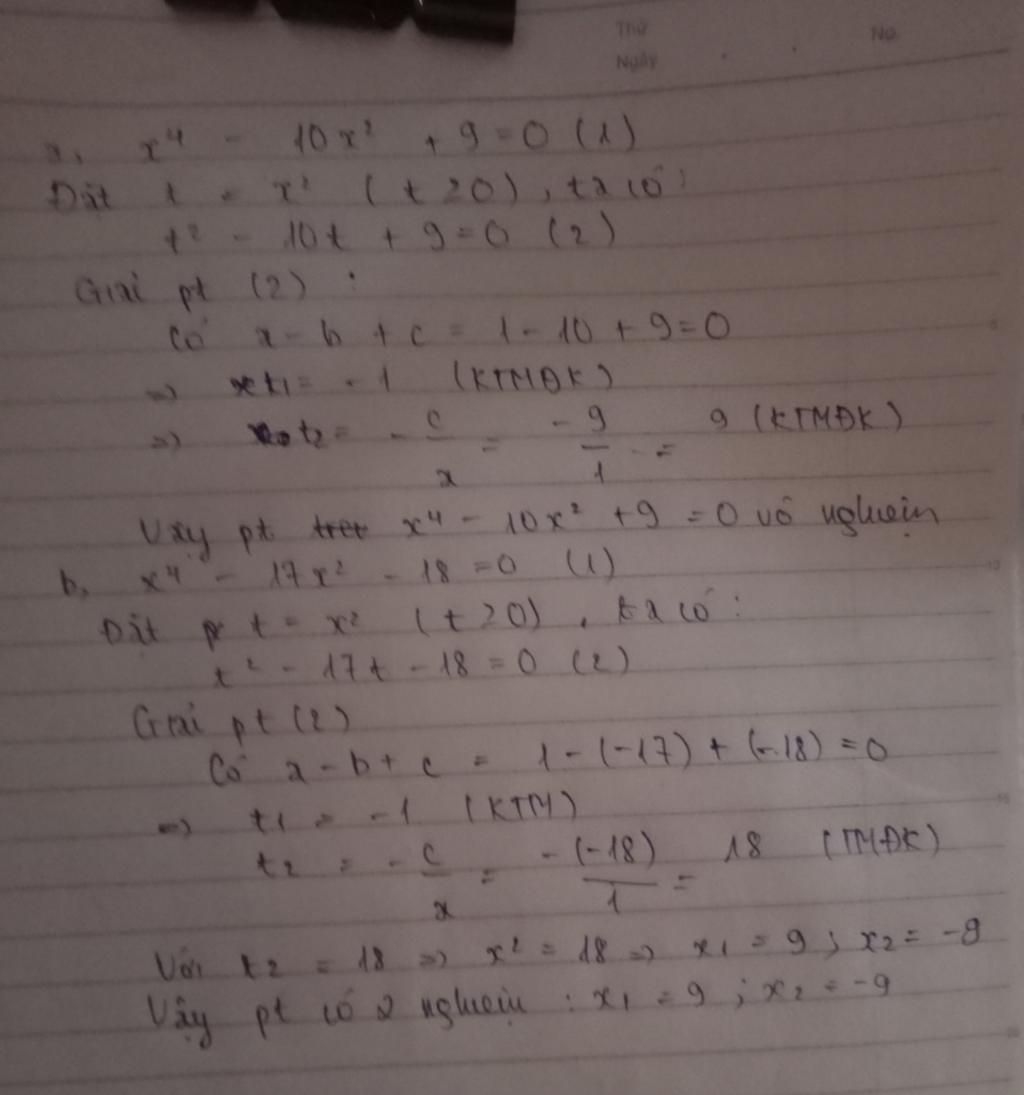 Thứ
No.
Ngày
a, x⁴ - 10x² + 9 = 0 (1)
Đặt t = x² (t ≥ 0), ta có:
t² - 10t + 9 = 0 (2)
Giải pt (2) :
Có a - b + c = 1 - 10 + 9 = 0
=> t₁ = -1 (KTMĐK)
=> t₂ = -c/a = -9/1 = 9 (KTMĐK)
Vậy pt x⁴ - 10x² + 9 = 0 vô nghiệm
b, x⁴ - 17x² - 18 = 0 (1)
Đặt t = x² (t ≥ 0), ta có:
t² - 17t - 18 = 0 (2)
Giải pt (2)
Có a - b + c = 1 - (-17) + (-18) = 0
=> t₁ = -1 (KTM)
t₂ = -c/a = -(-18)/1 = 18 (TMĐK)
Với t₂ = 18 => x² = 18 => x₁ = 9 ; x₂ = -9
Vậy pt có 2 nghiệm : x₁ = 9 ; x₂ = -9